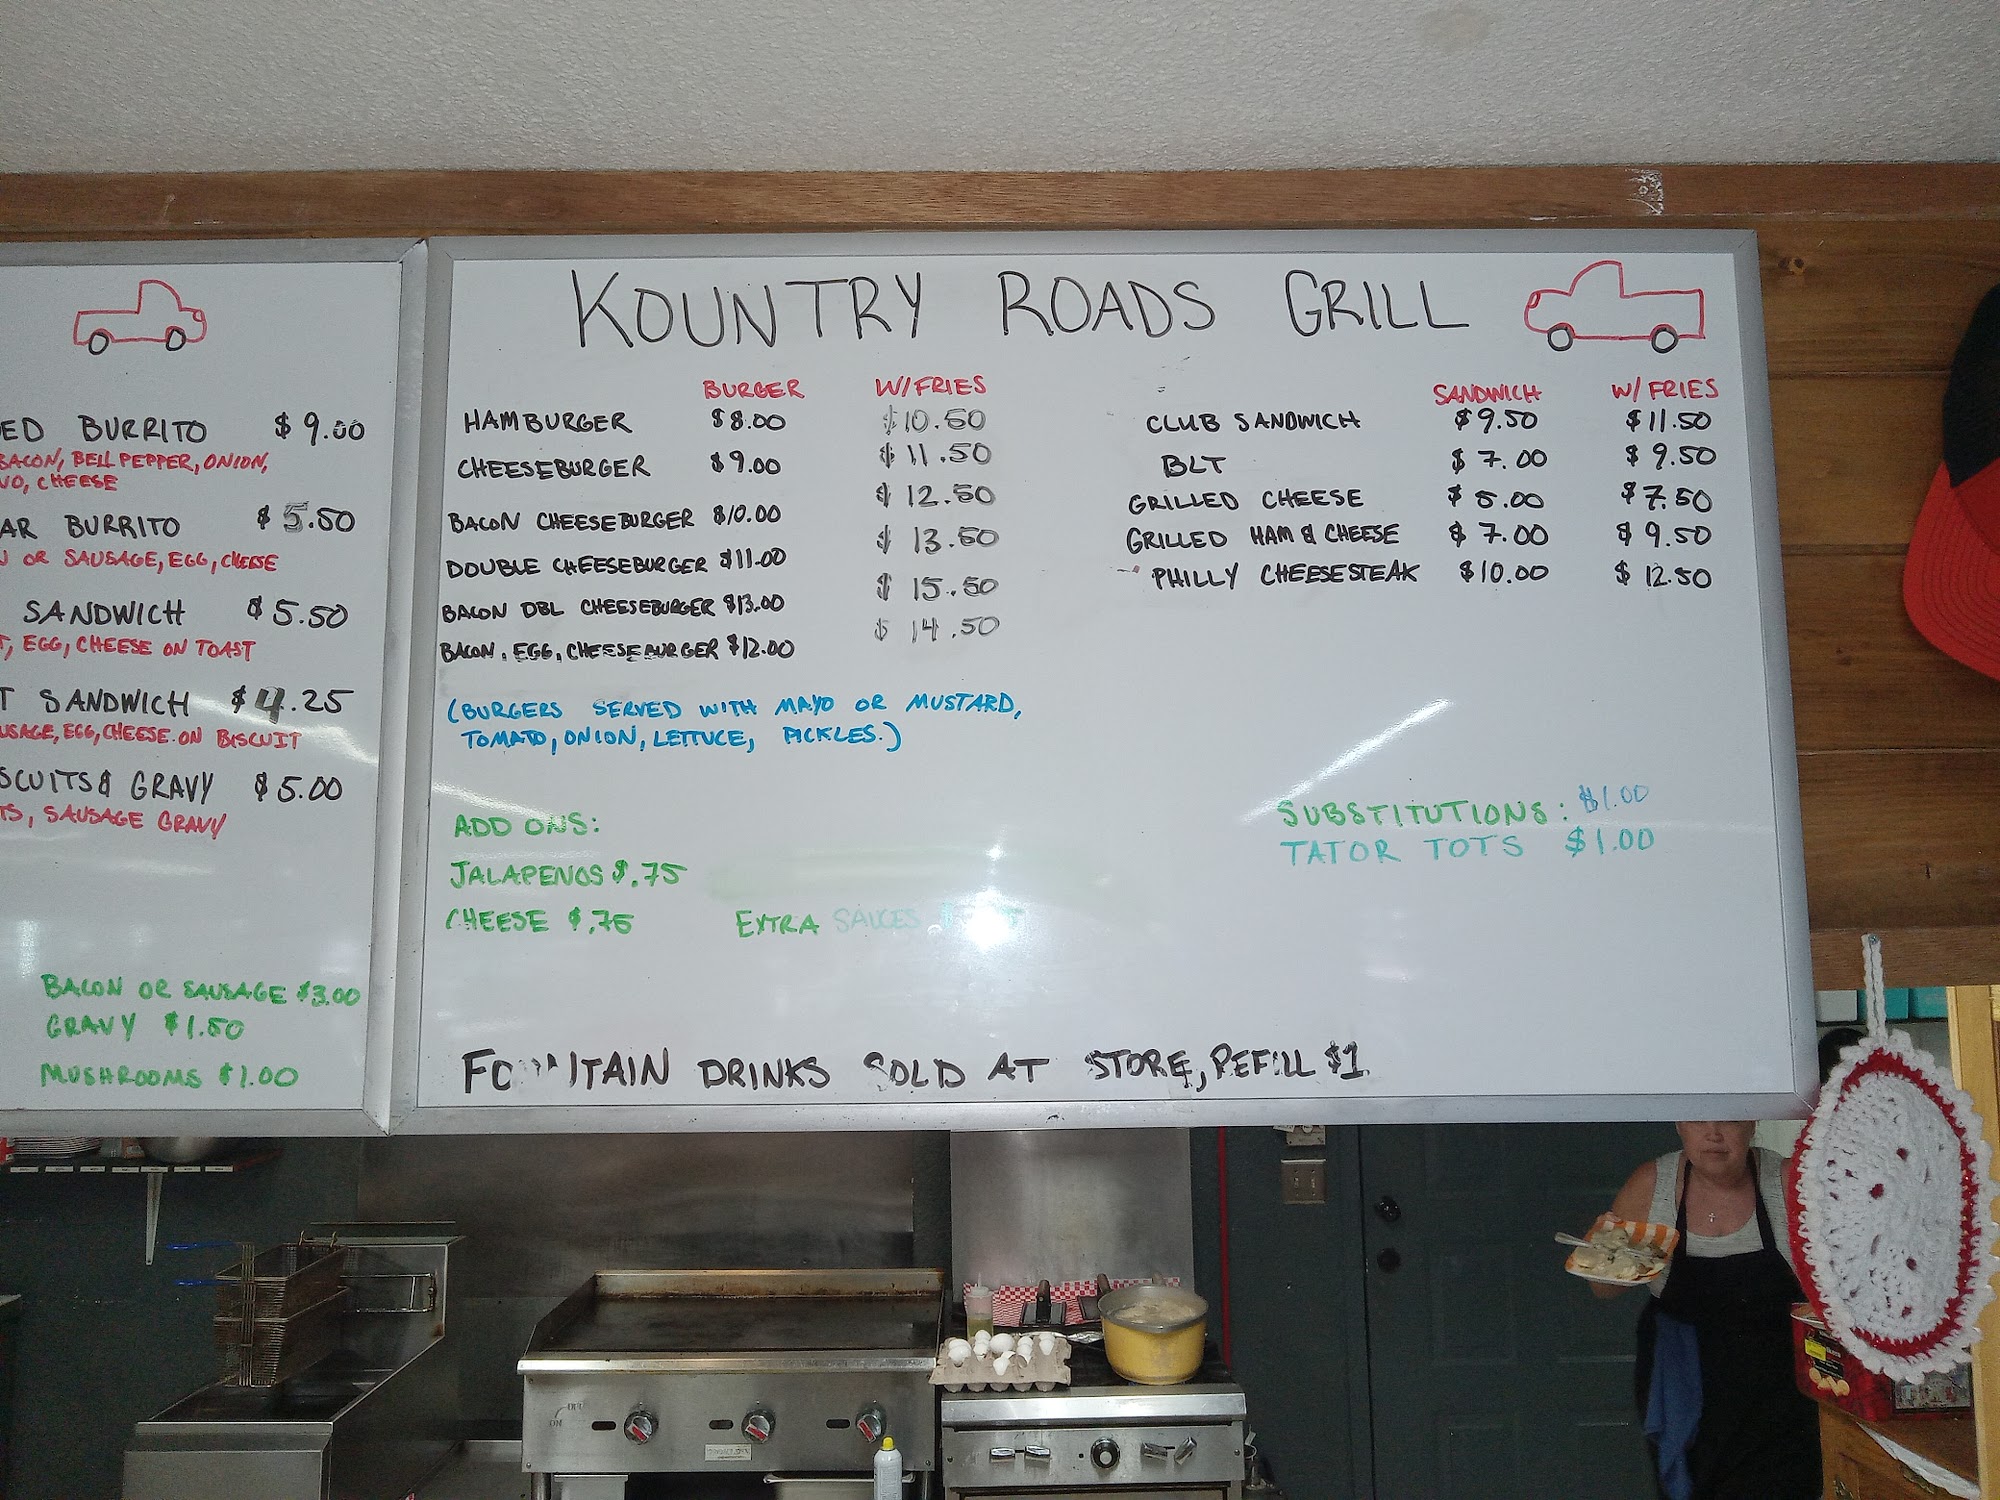 ED BURRITO $9.00
BACON, BELL PEPPER, ONION,
CHEESE
AR BURRITO $5.50
OR SAUSAGE, EGG, CHEESE
SANDWICH $5.50
EGG, CHEESE ON TOAST
T SANDWICH $4.25
USAGE, EGG, CHEESE ON BISCUIT
SCUITS & GRAVY $5.00
TS, SAUSAGE GRAVY
BACON OR SAUSAGE $3.00
GRAVY $1.50
MUSHROOMS $1.00
KOUNTRY ROADS GRILL
BURGER W/FRIES
HAMBURGER $8.00 $10.50
CHEESEBURGER $9.00 $11.50
BACON CHEESEBURGER $10.00 $12.50
DOUBLE CHEESEBURGER $11.00 $13.50
BACON DBL CHEESEBURGER $13.00 $15.50
BACON, EGG, CHEESEBURGER $12.00 $14.50
(BURGERS SERVED WITH MAYO OR MUSTARD,
TOMATO, ONION, LETTUCE, PICKLES.)
ADD ONS:
JALAPENOS $.75
CHEESE $.75 EXTRA SAUCES
SANDWICH W/FRIES
CLUB SANDWICH $9.50 $11.50
BLT $7.00 $9.50
GRILLED CHEESE $5.00 $7.50
GRILLED HAM & CHEESE $7.00 $9.50
PHILLY CHEESESTEAK $10.00 $12.50
SUBSTITUTIONS: $1.00
TATOR TOTS $1.00
FOUNTAIN DRINKS SOLD AT STORE, REFILL $1